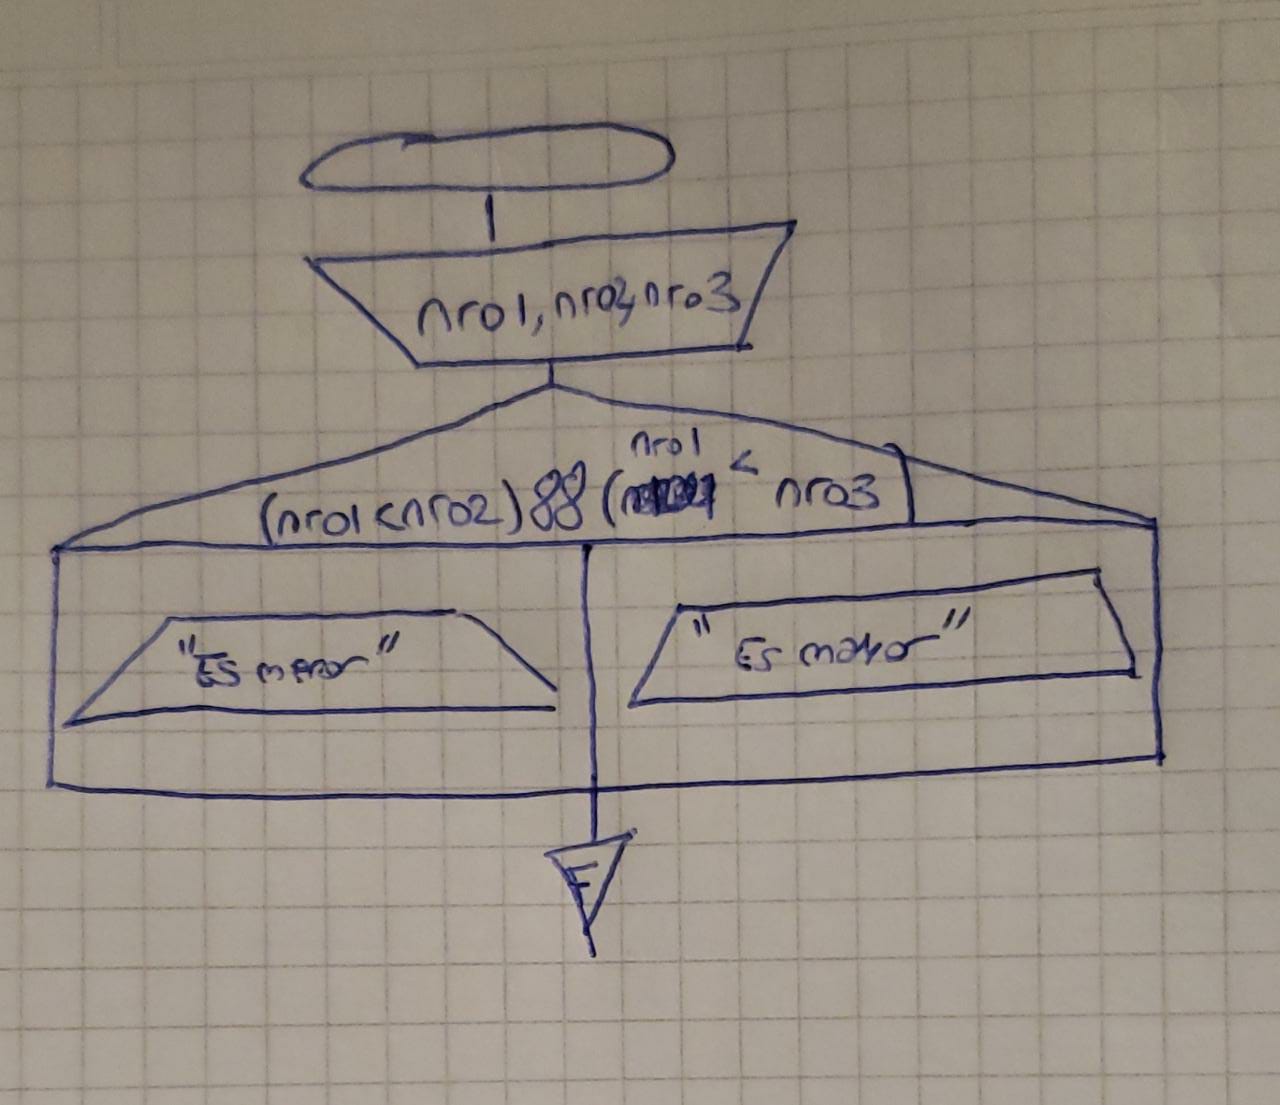 nro1, nro2, nro3
nro1
(nro1 < nro2) && ( < nro3)
"Es menor"
"Es mayor"
F